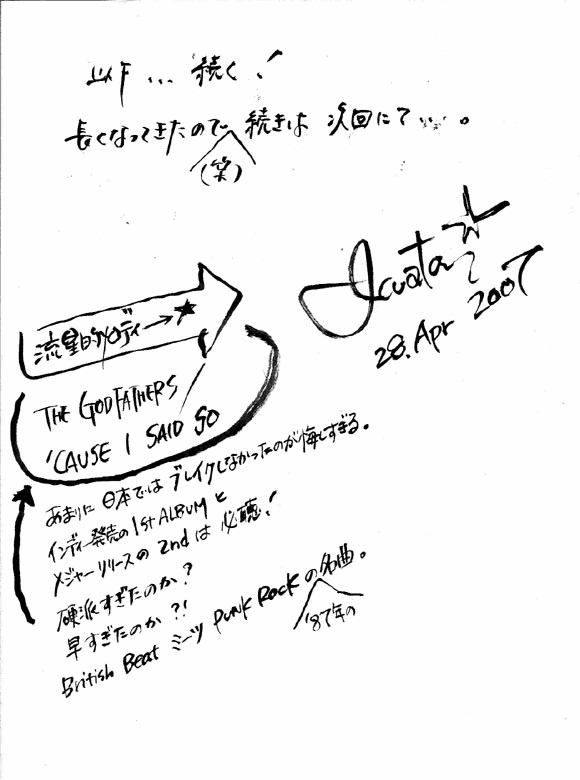 以下... 続く!
長くなってきたので(笑)続きは 次回にて....。
Iwata
28. Apr 2007
流星的メロディー→★
THE GODFATHERS
'CAUSE I SAID SO
あまりに日本ではブレイクしなかったのが悔しすぎる。
インディー発売の1st ALBUMと
メジャーリリースの2ndは必聴!
硬派すぎたのか?
早すぎたのか?!
British Beat ミーツ PUNK ROCK の'87年の名曲。